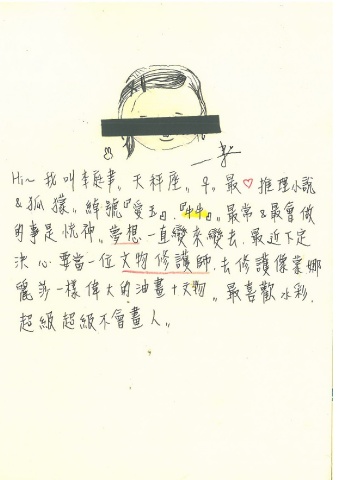 Hi~ 我叫李庭葦。天秤座。♀。最♡推理小說
&狐獴。綽號『愛玉』.『斗斗』。最常&最會做
的事是恍神。夢想一直變來變去.最近下定
決心要當一位文物修護師.去修護像蒙娜
麗莎一樣偉大的油畫+文物。最喜歡水彩.
超級超級不會畫人。